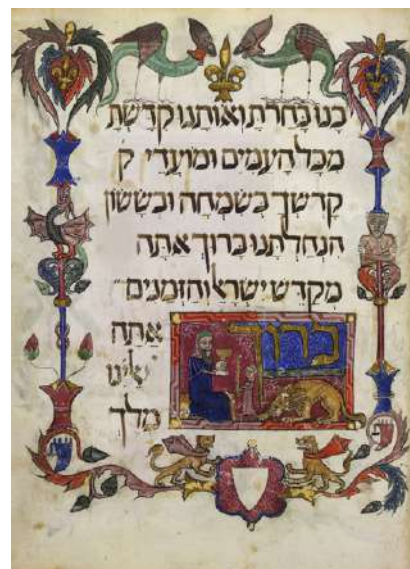 כִּי בָנוּ בָחַרְתָּ וְאוֹתָנוּ קִדַּשְׁתָּ
מִכָּל הָעַמִּים וּמוֹעֲדֵי ק
קָדְשְׁךָ בְּשִׂמְחָה וּבְשָׂשׂוֹן
הִנְחַלְתָּנוּ בָּרוּךְ אַתָּה
מְקַדֵּשׁ יִשְׂרָאֵל וְהַזְּמַנִּים
אַתָּה ברוך
מֶלֶךְ